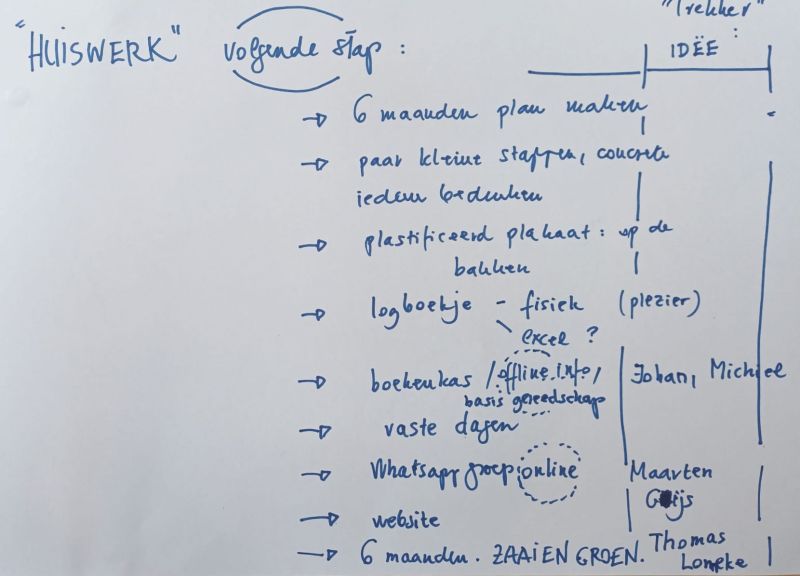 "Trekker" :
"HUISWERK" volgende stap : IDËE
→ 6 maanden plan maken
→ paar kleine stappen, concrete
iedeen bedenken
→ plastificeerd plakaat : op de
bakken
→ logboekje - fisiek (plezier)
\ excel ?
→ boekenkas / offline info, Johan, Michiel
basis gereedschap
→ vaste dagen
→ Whatsapp groep: online Maarten
Gijs
→ website
→ 6 maanden. ZAAI EN GROEN. Thomas
Loneke